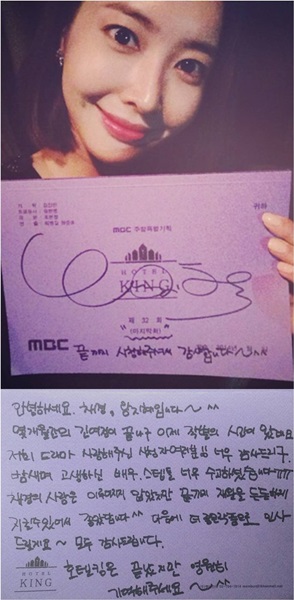 귀하
MBC 주말특별기획
HOTEL
KING
제 32 회
(마지막회)
MBC 끝까지 시청해주셔서 감사합니다~^^
안녕하세요. 채경, 왕지혜입니다~ ^^
몇개월간의 긴여정이 끝나고 이제 작별의 시간이 왔네요
저희 드라마 사랑해주신 시청자여러분 너무 감사드리구,
밤새며 고생하신 배우, 스탭들 너무 수고하셨습니다
채경의 사랑은 이루어지지 않았지만 끝까지 재완을 든든하게
지킬수있어서 좋았습니다^^ 다음에 더 좋은작품으로 인사
드릴게요~ 모두 감사드립니다.
HOTEL
KING
호텔킹은 끝났지만 영원히
기억해주세요~ ^^